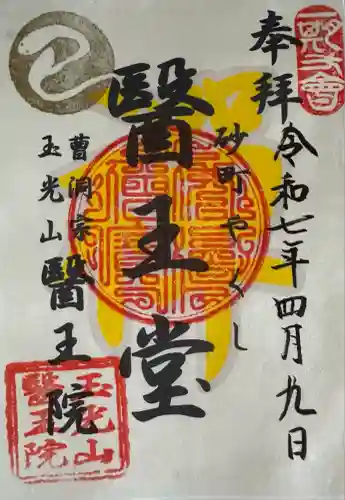 奉拝
令和七年四月九日
砂町やくし
醫王堂
曹洞宗
玉光山醫王院
玉光山
醫王院